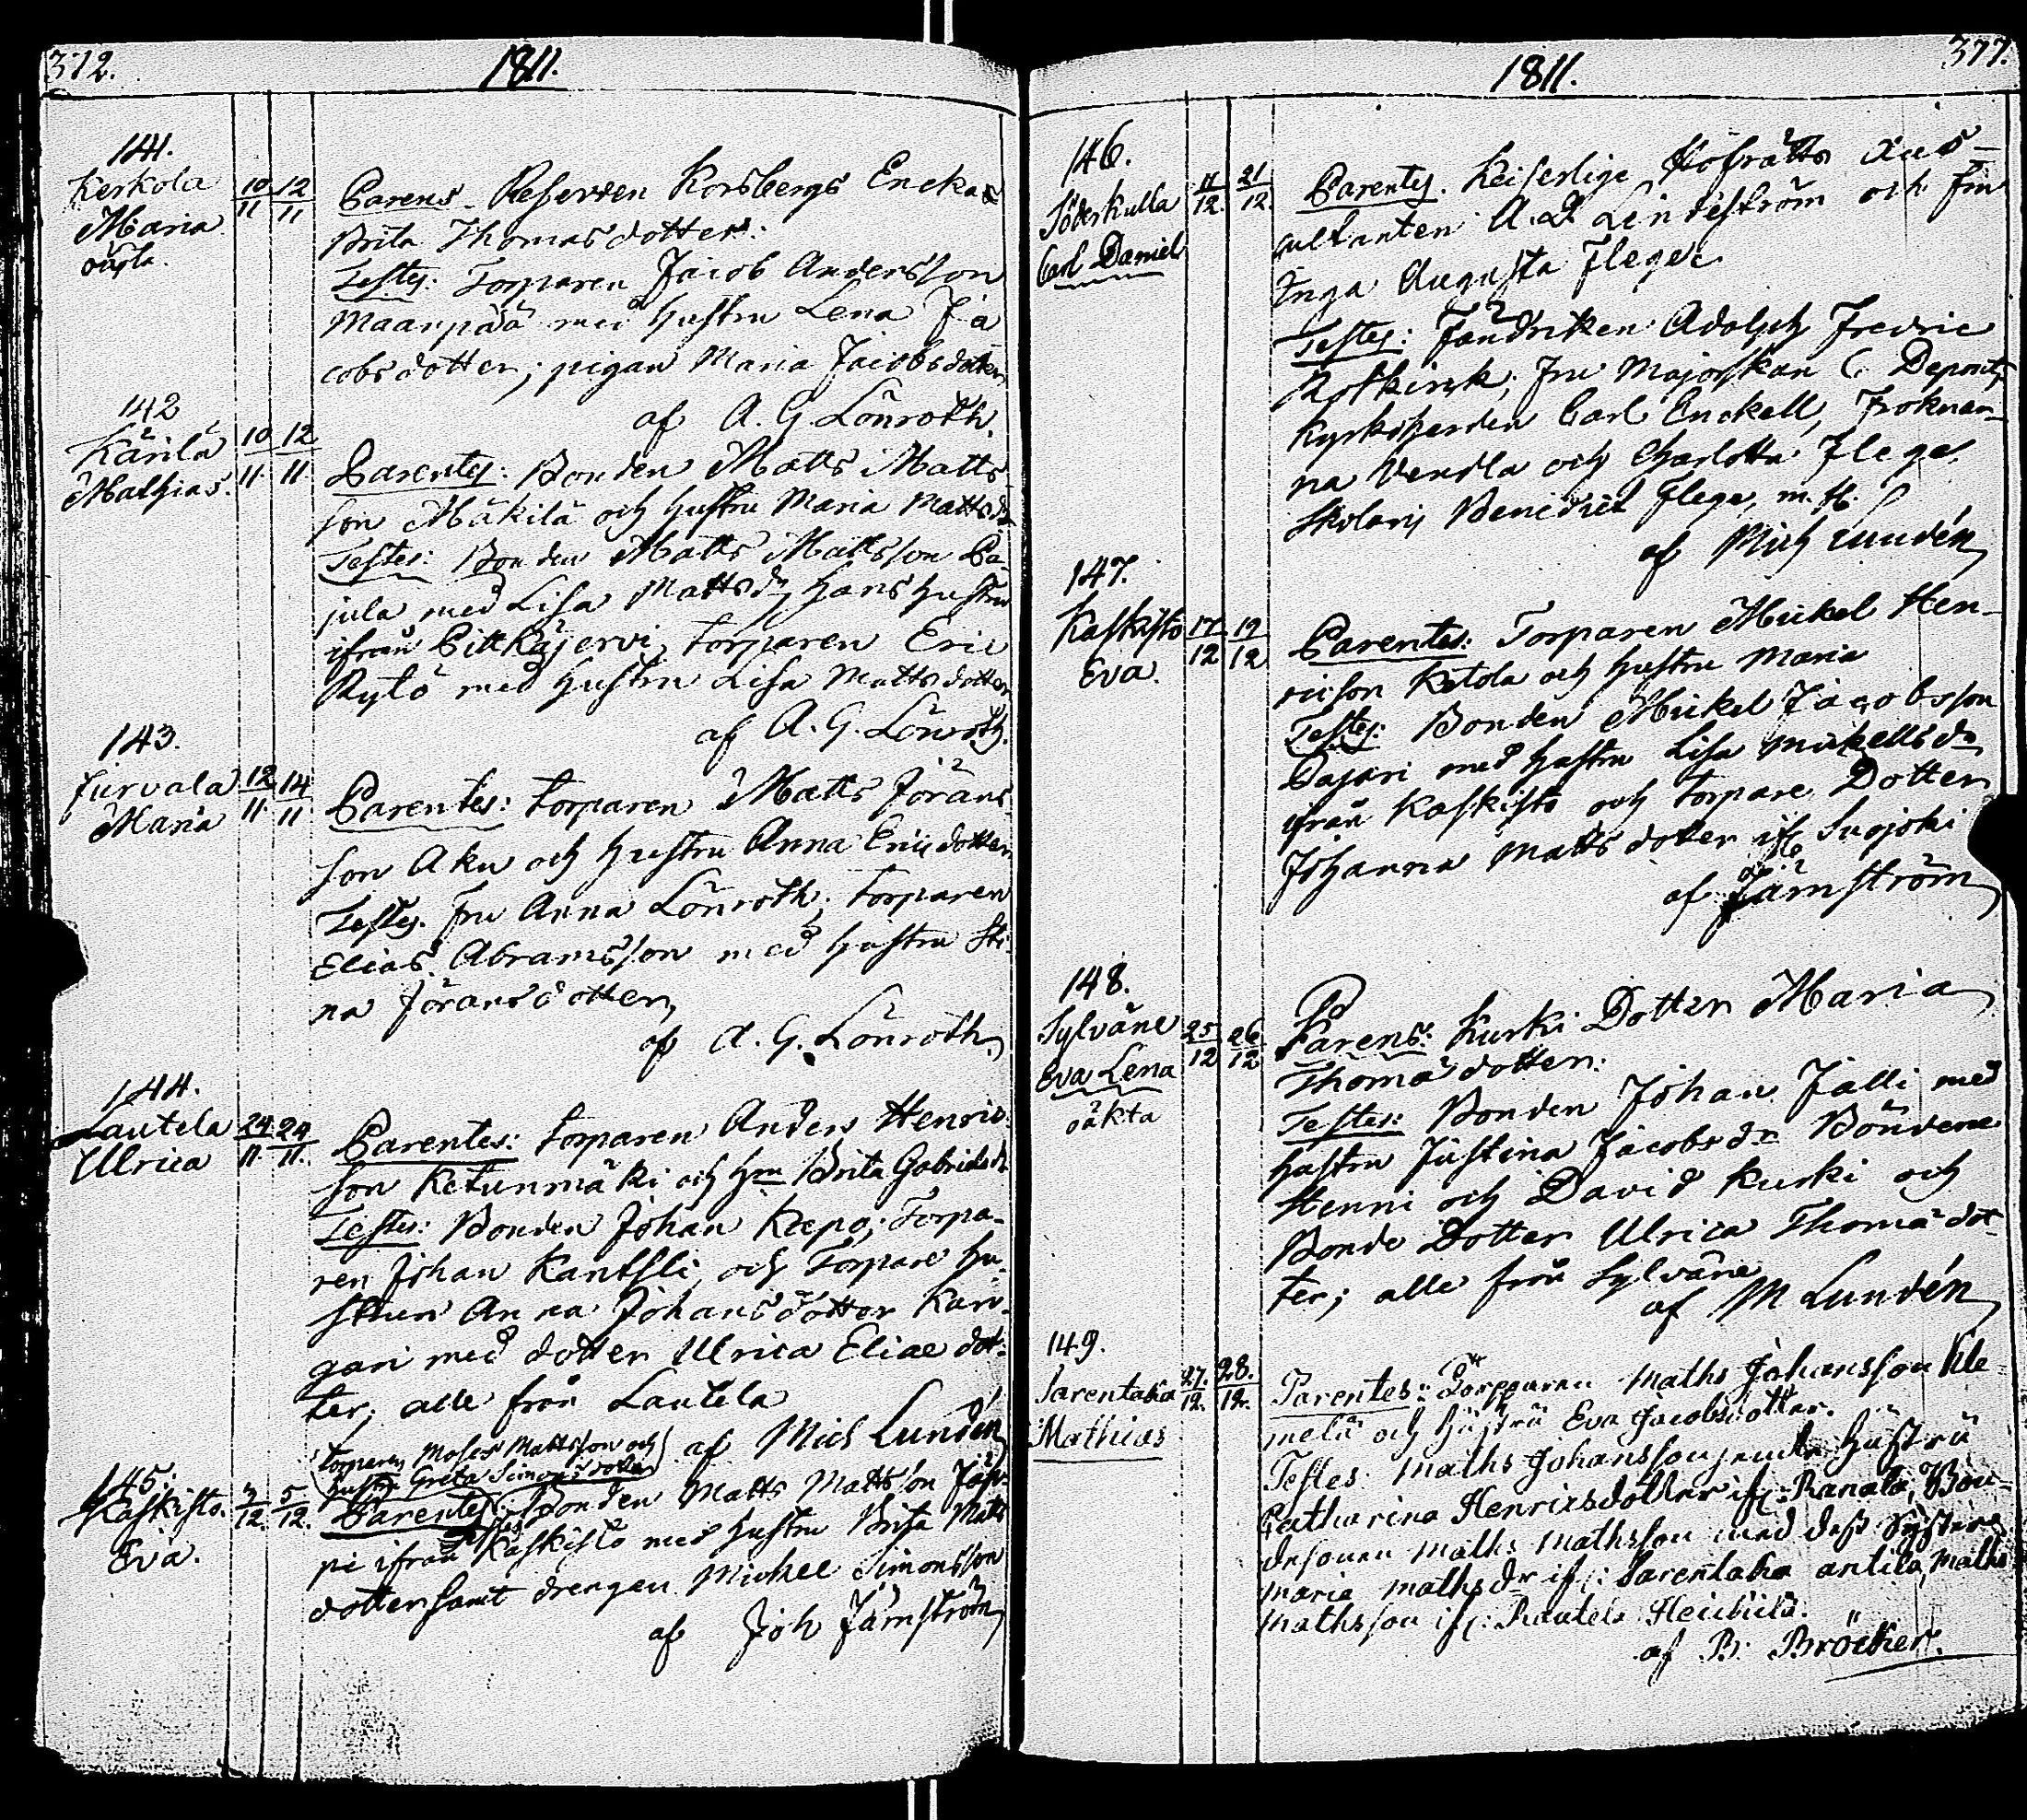 372.
1811.
141.
Kerkola
Maria
oägta.
10/11 12/11
Parens. Reserven Korsbergs Encka
Brita Thomasdotter.
Testes: Torparen Jacob Andersson
Maanpää med hustru Lena Ja
cobsdotter; pigan Maria Jacobsdotter
af A. G. Lönroth.
142
Kärilä
Mathias.
10/11 12/11
Parentes: Bonden Matts Matts
son Mäkilä och hustru Maria Mattsdr
Testes: Bonden Matts Mattsson Pa-
jula med Lisa Mattsdr hans hustru
ifrån Pitkäjervi, torparen Eric
Rylö med hustru Lisa Mattsdotter
af A. G. Lönroth.
143.
Jurvala
Maria
12/11 14/11
Parentes: torparen Matts Jörans
son Aku och hustru Anna Ericdotter
Testes. fru Anna Lönroth; torparen
Elias Abramsson med hustru Sti-
na Jöransdotter,
af A. G. Lönroth.
144.
Lautela
Ulrica
24/11. 24/11.
Parentes: torparen Anders Henric-
son Ketunmäki och Hru Brita Gabrielsdr
Testes: Bonden Johan Repo; Torpa-
ren Johan Kantsli, och Torpare hu-
strun Anna Johansdotter Kan-
gari med dotter Ulrica Eliae dot-
ter; alle från Lautela
af Mich Lundén
145.
Kaskisto.
Eva.
3/12. 5/12.
(torparen Moses Mattsson och
hustru Greta Simonsdotter)
Parentes: Bonden Matts Mattsson
Testes
pi ifrån Kaskisto med hustru Brita Matts
dotter samt drengen Mickel Simonsson
af Joh Jämström
1811.
377.
146.
Söderkulla
Carl Daniel
11/12. 21/12.
Parentes. Keiserlige Hofrätts Aus-
cultanten A. D Lindeström och fru
Inga Augusta Flege.
Testes: Fändriken Adolph Fredric
Rotkirck; fru Majorskan C. Deponts
Kyrkoherden Carl Enckell, Froknar-
na Vendla och Charlotta Flege.
Skolaris Benedict Flege, m. fl.
af Mich Lundén
147.
Kaskisto
Eva.
17/12 19/12
Parentes: Torparen Mickel Hen-
ricson Ketola och hustru Maria
Testes: Bonden Mickel Jacobsson
Pajari med hustru Lisa Mickellsdr
ifrån Kaskisto och torpare Dotter
Johanna Mattsdotter ifr Suojoki
af Jämström
148.
Sylväne
Eva Lena
oäkta
25/12 26/12
Parens: Kurki Dotter Maria
Thomædotter.
Testes: Bonden Johan Jalli med
hustru Justina Jacobsdr Bönderne
Henni och David Kurki och
Bonde Dotter Ulrica Thomædot-
ter; alle från Sylväne
af M Lundén
149.
Sarentaka
Mathias
27./12. 28./12.
Parentes: Torparen Maths Johansson Kle-
melä och hustru Eva Jacobsdotter.
Testes Maths Johansson hustru
Catharina Henricsdotter ifr: Ranala, Bon-
desonen Maths Mathsson med dess Syster
Maria Mathsdr ifr: Sarentaka antila, Maths
Mathsson ifr: Rautela Heickilä.
af B. Bröcker.